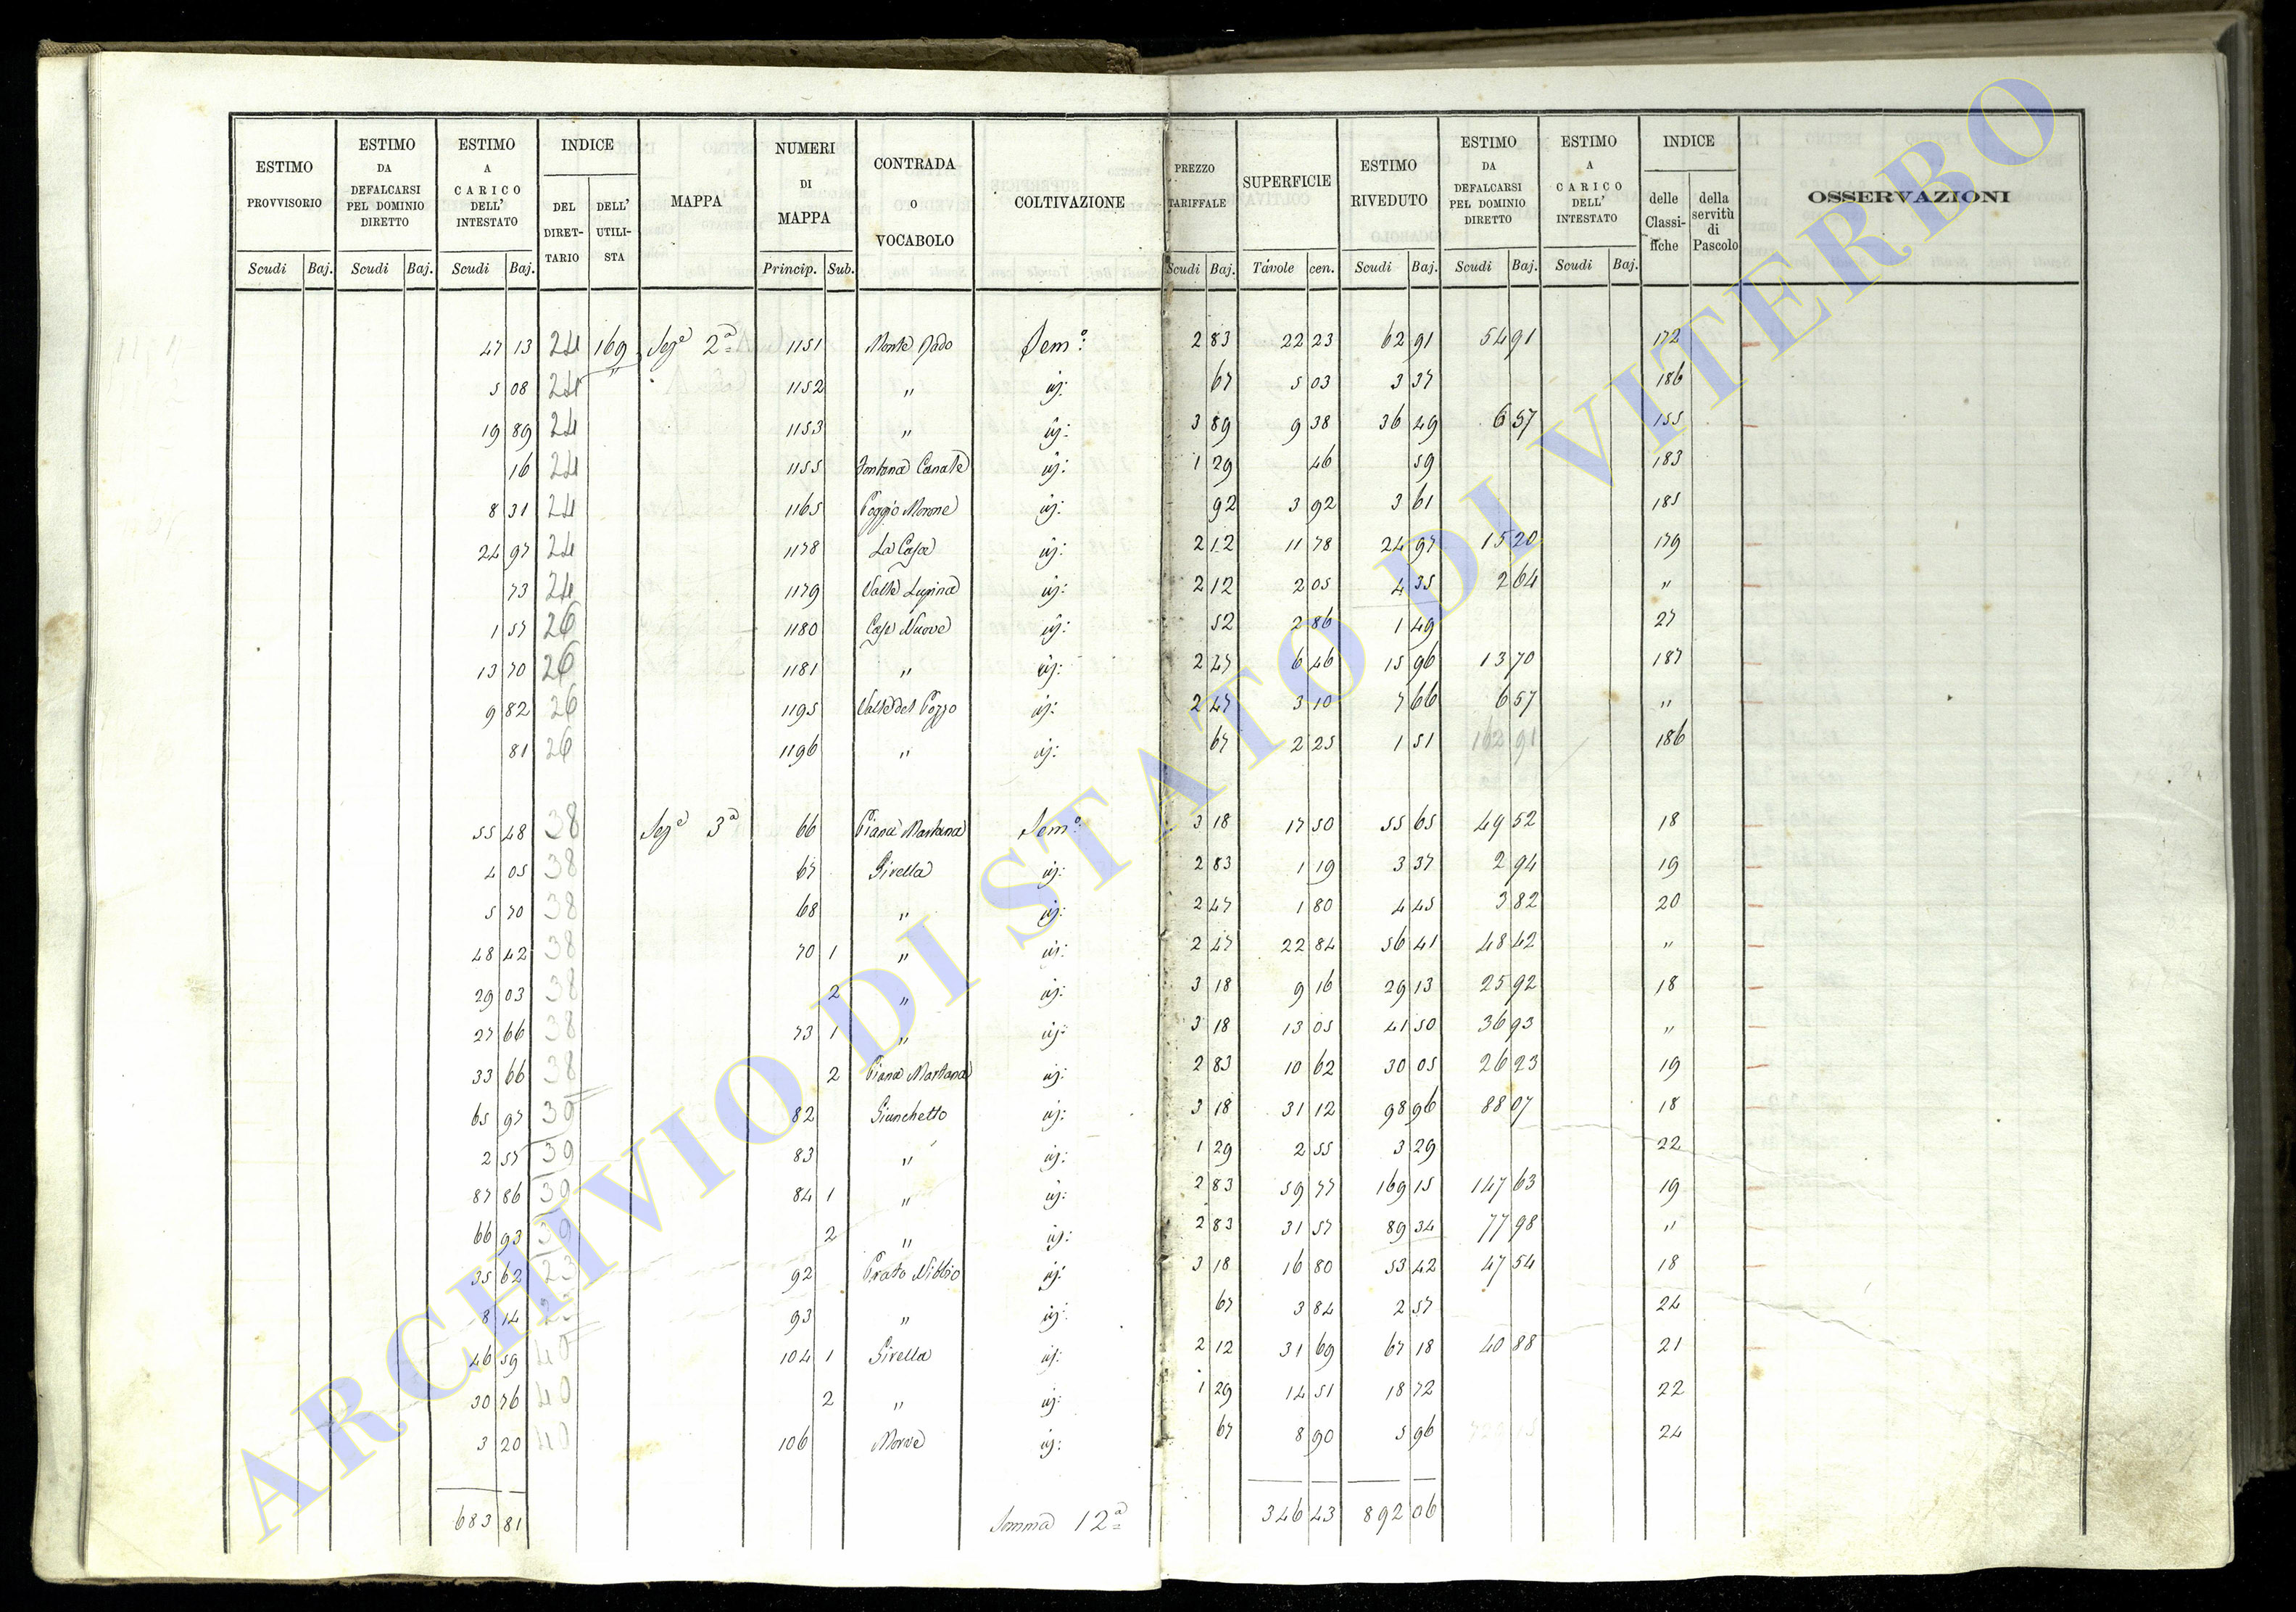 ESTIMO PROVVISORIO | ESTIMO DA DEFALCARSI PEL DOMINIO DIRETTO | ESTIMO A CARICO DELL' INTESTATO | INDICE DEL DIRETTARIO | DELL' UTILISTA | MAPPA | NUMERI DI MAPPA | CONTRADA O VOCABOLO | COLTIVAZIONE | PREZZO TARIFFALE | SUPERFICIE | ESTIMO RIVEDUTO | ESTIMO DA DEFALCARSI PEL DOMINIO DIRETTO | ESTIMO A CARICO DELL' INTESTATO | INDICE delle Classifiche | della servitù di Pascolo | OSSERVAZIONI
Scudi | Baj. | Scudi | Baj. | Scudi | Baj. | Princip. | Sub. | Scudi | Baj. | Tavole | cen. | Scudi | Baj. | Scudi | Baj. | Scudi | Baj.
47 13 | 24 | 169 | Sezᵉ 2ª | 1151 | Monte Dado | Semº: | 2 83 | 22 23 | 62 91 | 54 91 | 172
5 08 | 24 | " | 1152 | " | id: | 67 | 5 03 | 3 37 | 186
19 89 | 24 | 1153 | " | id: | 3 89 | 9 38 | 36 49 | 6 57 | 155
16 | 24 | 1155 | Fontana Canale | id: | 1 29 | 46 | 59 | 183
8 31 | 24 | 1165 | Poggio Morone | id: | 92 | 3 92 | 3 61 | 185
24 97 | 24 | 1178 | La Casa | id: | 2 12 | 11 78 | 24 97 | 15 20 | 179
73 | 24 | 1179 | Valle Lupina | id: | 2 12 | 2 05 | 4 35 | 2 64 | "
1 57 | 26 | 1180 | Case Nuove | id: | 52 | 2 86 | 1 49 | 27
13 70 | 26 | 1181 | " | id: | 2 47 | 6 46 | 15 96 | 13 70 | 187
9 82 | 26 | 1195 | Valle del Pozzo | id: | 2 47 | 3 10 | 7 66 | 6 57 | "
81 | 26 | 1196 | " | id: | 67 | 2 25 | 1 51 | 162 91 | 186
55 48 | 38 | Sezᵉ 3ª | 66 | Piana Martana | Semº: | 3 18 | 17 50 | 55 65 | 49 52 | 18
4 05 | 38 | 67 | Girella | id: | 2 83 | 1 19 | 3 37 | 2 94 | 19
5 70 | 38 | 68 | " | id: | 2 47 | 1 80 | 4 45 | 3 82 | 20
48 42 | 38 | 70 | 1 | " | id: | 2 47 | 22 84 | 56 41 | 48 42 | "
29 03 | 38 | 2 | " | id: | 3 18 | 9 16 | 29 13 | 25 92 | 18
27 66 | 38 | 73 | 1 | " | id: | 3 18 | 13 05 | 41 50 | 36 93 | "
33 66 | 38 | 2 | Piana Martana | id: | 2 83 | 10 62 | 30 05 | 26 23 | 19
65 97 | 39 | 82 | Giunchetto | id: | 3 18 | 31 12 | 98 96 | 88 07 | 18
2 57 | 39 | 83 | " | id: | 1 29 | 2 55 | 3 29 | 22
87 86 | 39 | 84 | 1 | " | id: | 2 83 | 59 77 | 169 15 | 147 63 | 19
66 93 | 39 | 2 | " | id: | 2 83 | 31 57 | 89 34 | 77 98 | "
35 62 | 23 | 92 | Prato Nibbio | id: | 3 18 | 16 80 | 53 42 | 47 54 | 18
8 14 | 93 | " | id: | 67 | 3 84 | 2 57 | 24
46 59 | 40 | 104 | 1 | Girella | id: | 2 12 | 31 69 | 67 18 | 40 88 | 21
30 76 | 40 | 2 | " | id: | 1 29 | 14 51 | 18 72 | 22
3 20 | 40 | 106 | id: | 67 | 8 90 | 5 96 | 24
683 81 | Somma 12ª | 346 43 | 892 06
ARCHIVIO DI STATO DI VITERBO